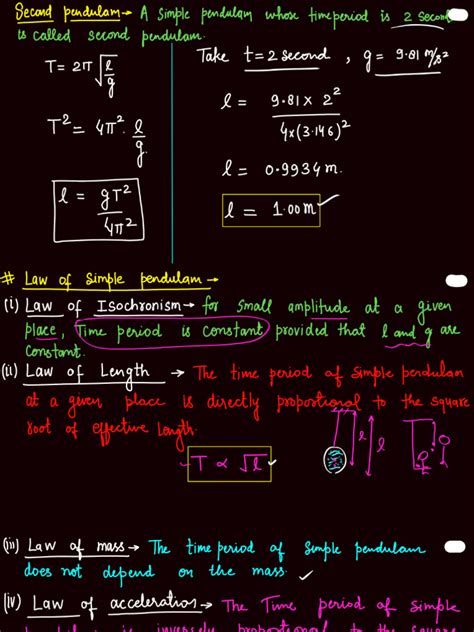 Second pendulam → A simple pendulam whose timeperiod is 2 Second
is called second pendulam.
T = 2π √(l/g)
T² = 4π². l/g
l = gT²/4π²
Take t = 2 second , g = 9.81 m/s²
l = 9.81 × 2² / 4×(3.146)²
l = 0.9934 m.
l = 1.00 m ✓
# Law of Simple pendulam →
(i) Law of Isochronism → for small amplitude at a given
place, Time period is constant provided that l and g are
constant.
(ii) Law of Length → The time period of simple pendulam
at a given place is directly proportional to the square
root of effective length.
T ∝ √l ✓
l
l
l
(iii) Law of mass → The time period of simple pendulam
does not depend on the mass ✓
(iv) Law of acceleration → The Time period of simple
is inversely proportional to the square